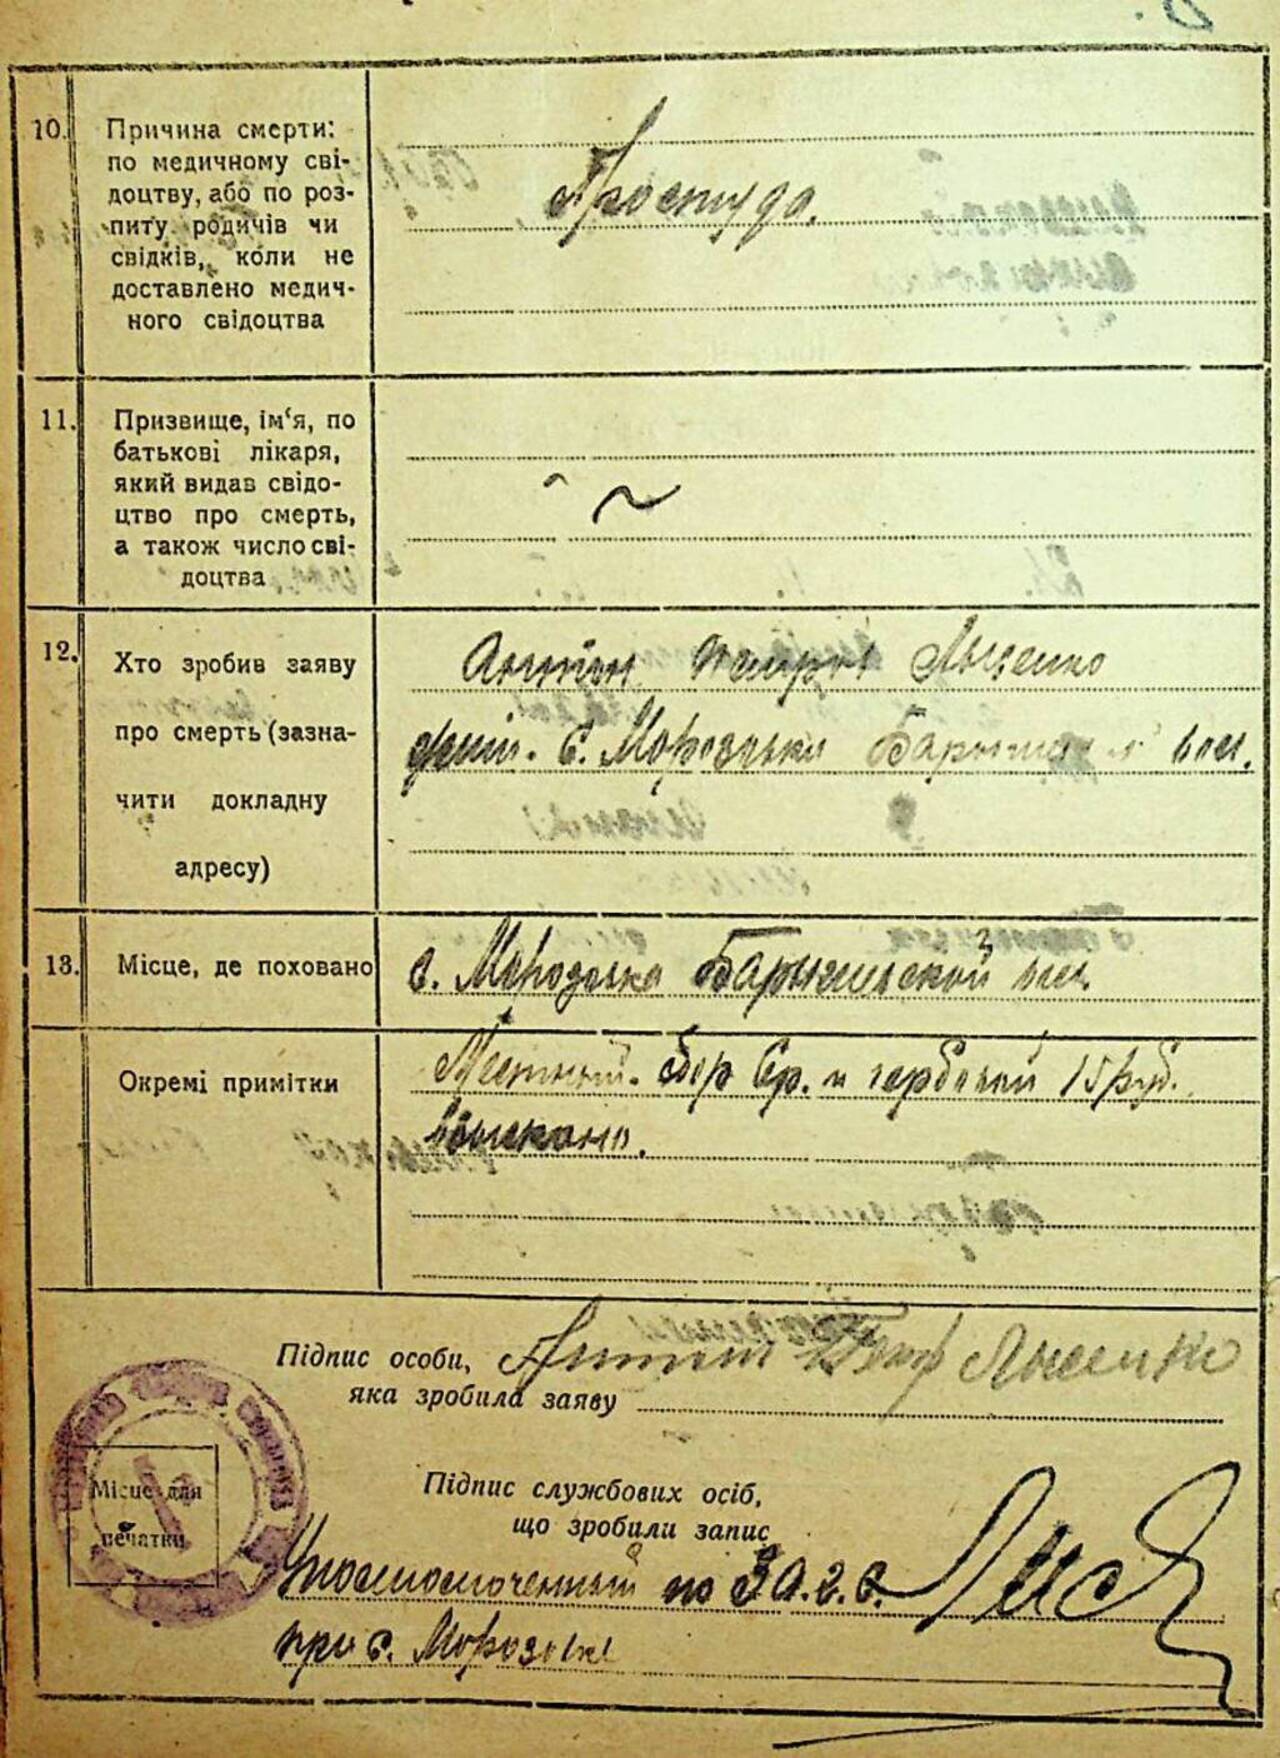 10. Причина смерти:
по медичному сві-
доцтву, або по роз-
питу родичів чи
свідків, коли не
доставлено медич-
ного свідоцтва
Простуда.
11. Призвище, ім‘я, по
батькові лікаря,
який видав свідо-
цтво про смерть,
а також число сві-
доцтва
~
12. Хто зробив заяву
про смерть (зазна-
чити докладну
адресу)
Антон Петров Лысенко
жит. с. Морозовки вол.
13. Місце, де поховано
с. Морозовка Барышевской вол.
Окремі примітки
Местный сбор и гербовый 15 руб.
взыскано.
Підпис особи,
яка зробила заяву
Антон Петр Лысенко
Місце для
печатки
Підпис службових осіб,
що зробили запис
Уполномоченный по ЗАГС
при с. Морозовке